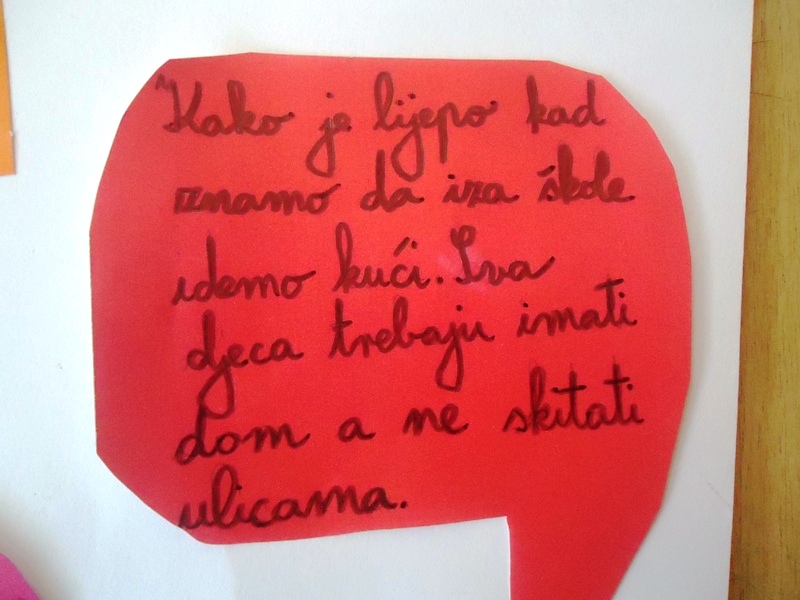 "Kako je lijepo kad
znamo da iza škole
idemo kući. Sva
djeca trebaju imati
dom a ne skitati
ulicama.